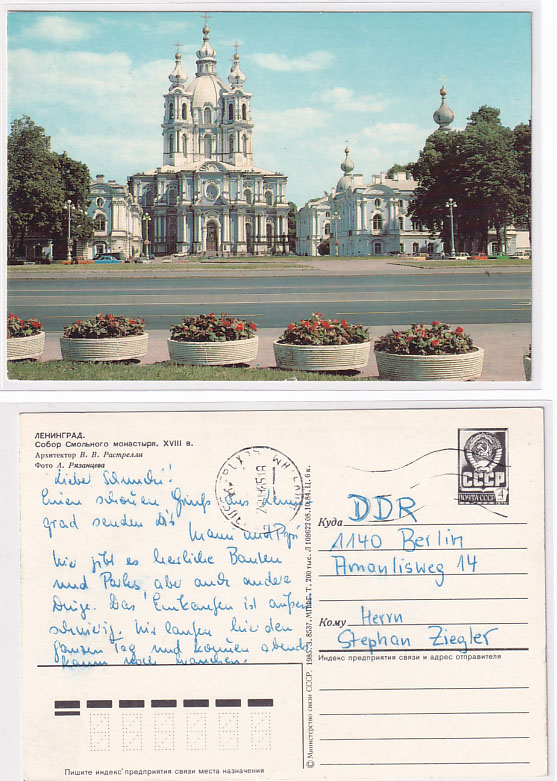 ЛЕНИНГРАД.
Собор Смольного монастыря. XVIII в.
Архитектор В. В. Растрелли
Фото А. Рязанцева
Liebe
Einen schönen Gruß aus Lenin
grad senden Dir
Mami und Papi
hier gibt es herrliche Bauten
und Parks, aber auch andere
Dinge. Das Einkaufen ist außerst
schwierig. Wir laufen hier den
ganzen Tag und können abends
kaum noch
СССР
ПОЧТА СССР
Куда
DDR
1140 Berlin
Amanlisweg 14
Кому
Herrn
Stephan Ziegler
Индекс предприятия связи и адрес отправителя
Пишите индекс предприятия связи места назначения
© Министерство связи СССР. 1985. З. 8537. МПФГ. Т. 200 тыс. Л 108622 08.10.84. Ц. 6 к.